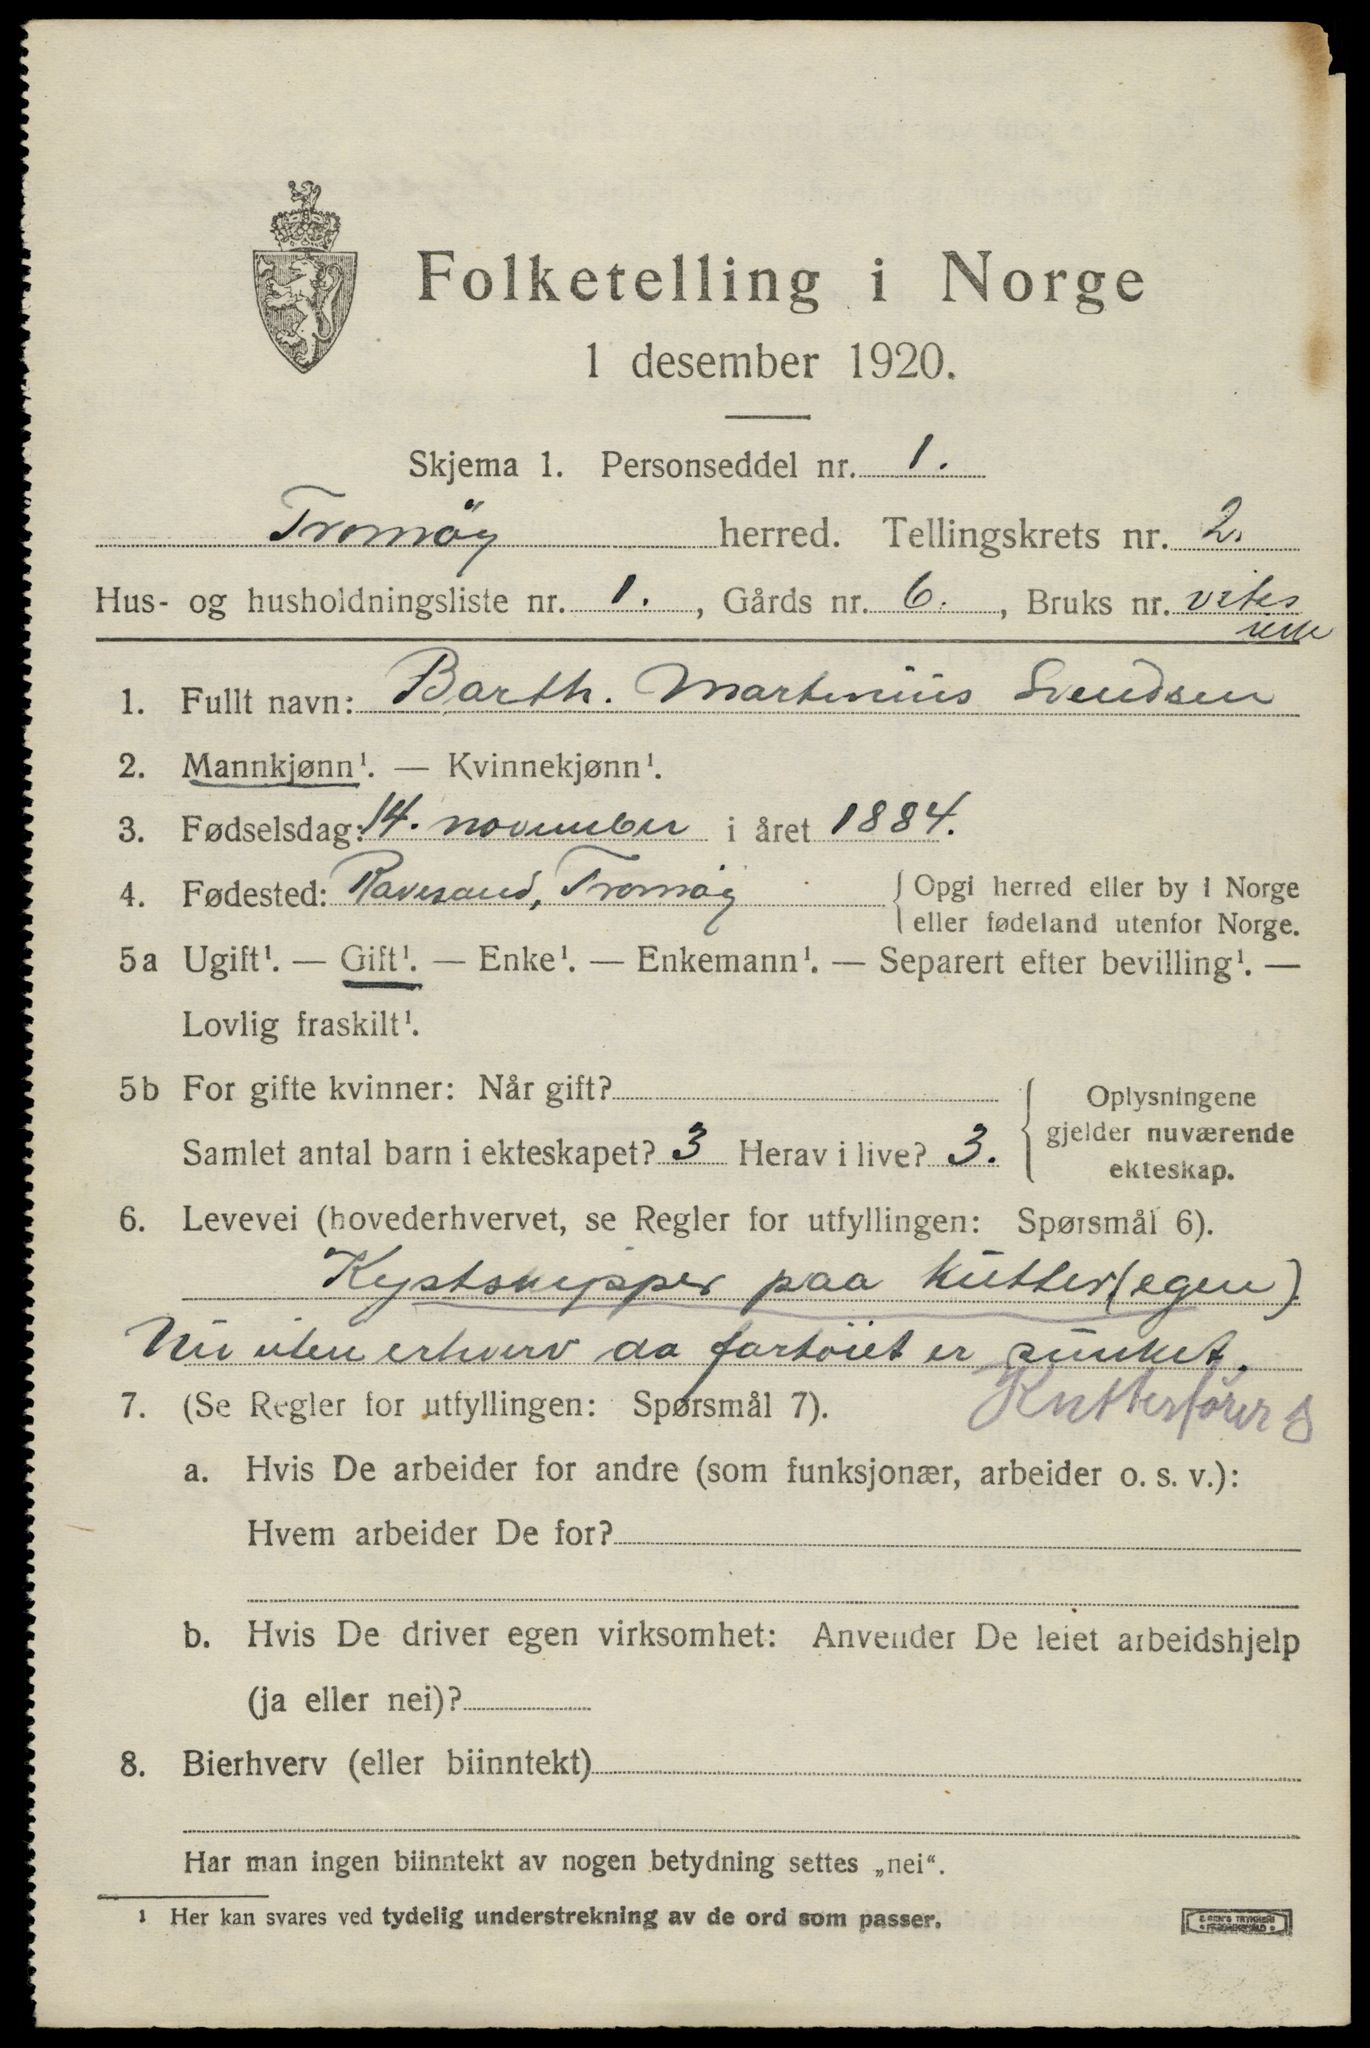 Folketelling i Norge
1 desember 1920.
Skjema 1. Personseddel nr. 1.
Tromöy herred. Tellingskrets nr. 2.
Hus- og husholdningsliste nr. 1., Gårds nr. 6., Bruks nr. vites
ikke
1. Fullt navn: Barth. Martinius Svendsen
2. Mannkjønn¹. — Kvinnekjønn¹.
3. Fødselsdag: 14. november i året 1884.
4. Fødested: Ravesand, Tromöy { Opgi herred eller by i Norge
eller fødeland utenfor Norge.
5a Ugift¹. — Gift¹. — Enke¹. — Enkemann¹. — Separert efter bevilling¹. —
Lovlig fraskilt¹.
5b For gifte kvinner: Når gift?
Samlet antal barn i ekteskapet? 3 Herav i live? 3.
Oplysningene
gjelder nuværende
ekteskap.
6. Levevei (hovederhvervet, se Regler for utfyllingen: Spørsmål 6).
Kystskipper paa kutter (egen)
Nu uten erhverv da fartöiet er sunket.
Kutterfører
7. (Se Regler for utfyllingen: Spørsmål 7).
a. Hvis De arbeider for andre (som funksjonær, arbeider o. s. v.):
Hvem arbeider De for?
b. Hvis De driver egen virksomhet: Anvender De leiet arbeidshjelp
(ja eller nei)?
8. Bierhverv (eller biinntekt)
Har man ingen biinntekt av nogen betydning settes „nei“.
¹ Her kan svares ved tydelig understrekning av de ord som passer.